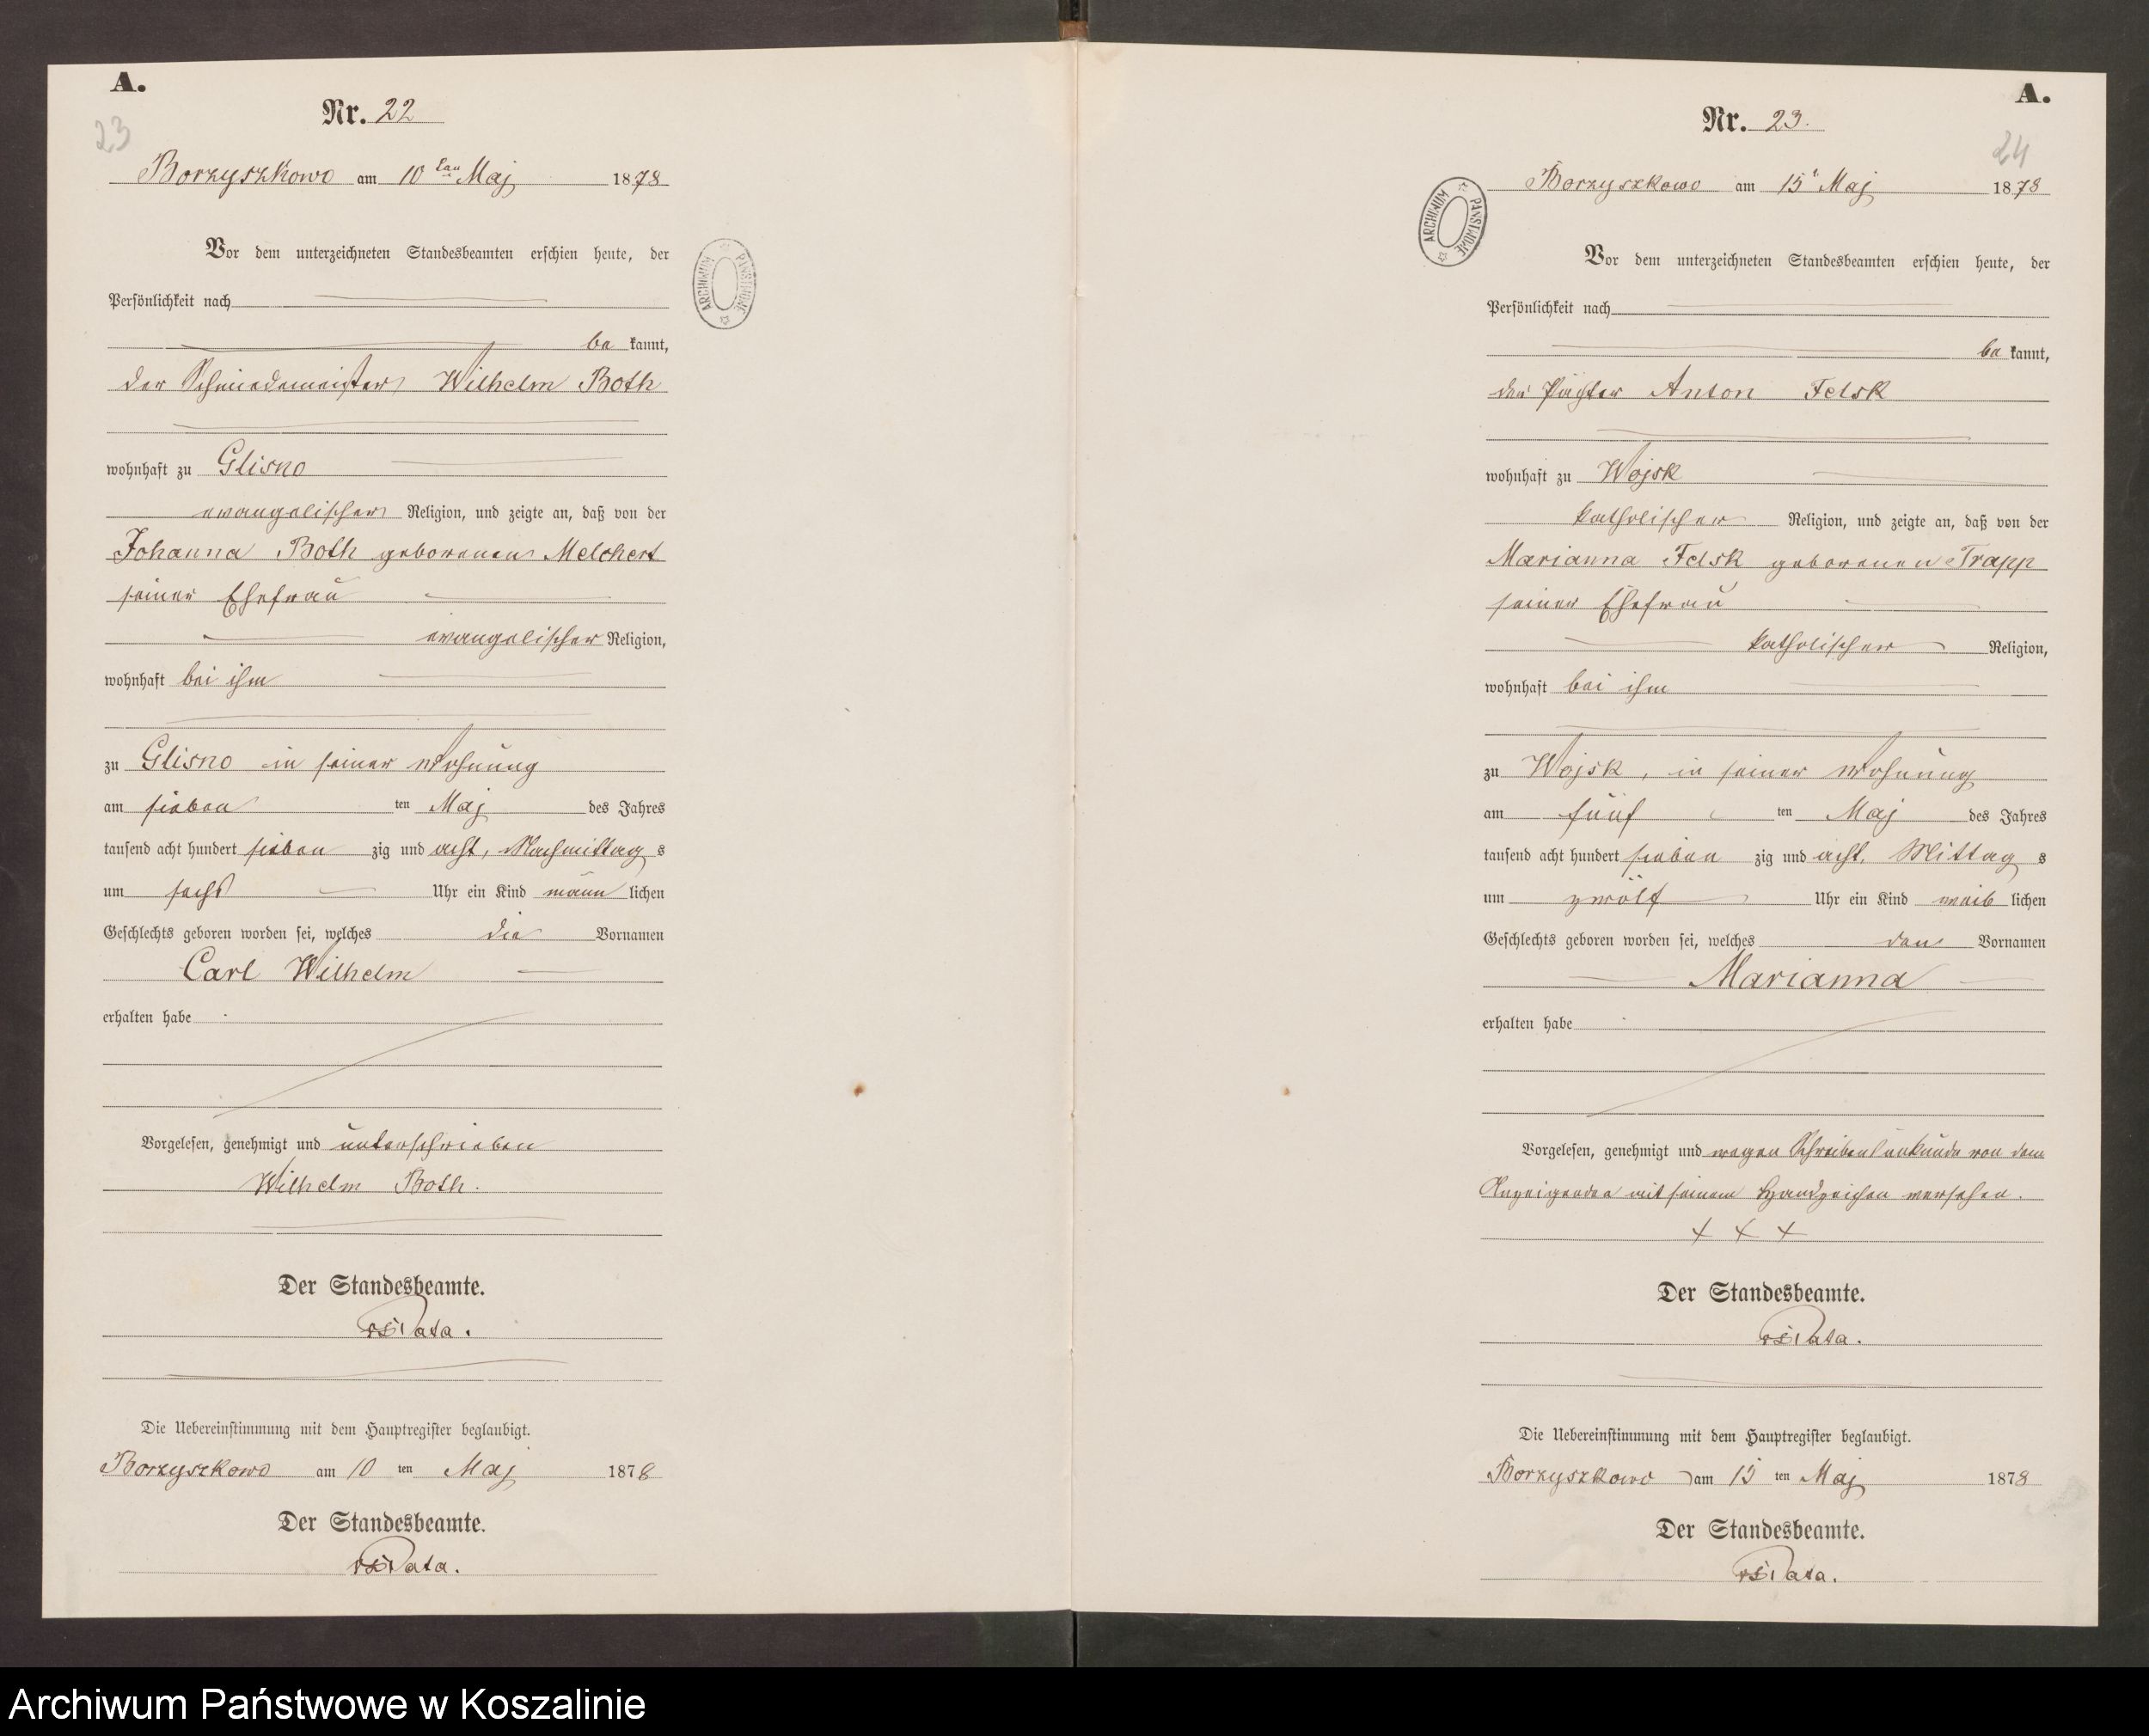 A.
Nr. 22
23
Borzyszkowo am 10ten Maj 1878
Vor dem unterzeichneten Standesbeamten erschien heute, der
Persönlichkeit nach
be kannt,
der Schmiedemeister Wilhelm Both
wohnhaft zu Glisno
evangelischer Religion, und zeigte an, daß von der
Johanna Both geborenen Melchert
seiner Ehefrau
evangelischer Religion,
wohnhaft bei ihm
zu Glisno in seiner Wohnung
am sieben ten Maj des Jahres
tausend acht hundert sieben zig und acht, Nachmittag s
um sechs Uhr ein Kind männ lichen
Geschlechts geboren worden sei, welches die Vornamen
Carl Wilhelm
erhalten habe
Vorgelesen, genehmigt und unterschrieben
Wilhelm Both.
Der Standesbeamte.
Die Uebereinstimmung mit dem Hauptregister beglaubigt.
Borzyszkowo am 10 ten Maj 1878
Der Standesbeamte.
ARCHIWUM PAŃSTWOWE
A.
Nr. 23.
24
Borzyszkowo am 15t Maj 1878
Vor dem unterzeichneten Standesbeamten erschien heute, der
Persönlichkeit nach
be kannt,
der Pächter Anton Felsk
wohnhaft zu Wojsk
katholischer Religion, und zeigte an, daß von der
Marianna Felsk geborenen Trapp
seiner Ehefrau
katholischer Religion,
wohnhaft bei ihm
zu Wojsk, in seiner Wohnung
am fünf ten Maj des Jahres
tausend acht hundert sieben zig und acht, Mittag s
um zwölf Uhr ein Kind weib lichen
Geschlechts geboren worden sei, welches den Vornamen
Marianna
erhalten habe
Vorgelesen, genehmigt und wegen Schreibensunkunde von dem
Anzeigenden mit seinem Handzeichen versehen.
+ + +
Der Standesbeamte.
Die Uebereinstimmung mit dem Hauptregister beglaubigt.
Borzyszkowo am 15 ten Maj 1878
Der Standesbeamte.
ARCHIWUM PAŃSTWOWE
Archiwum Państwowe w Koszalinie